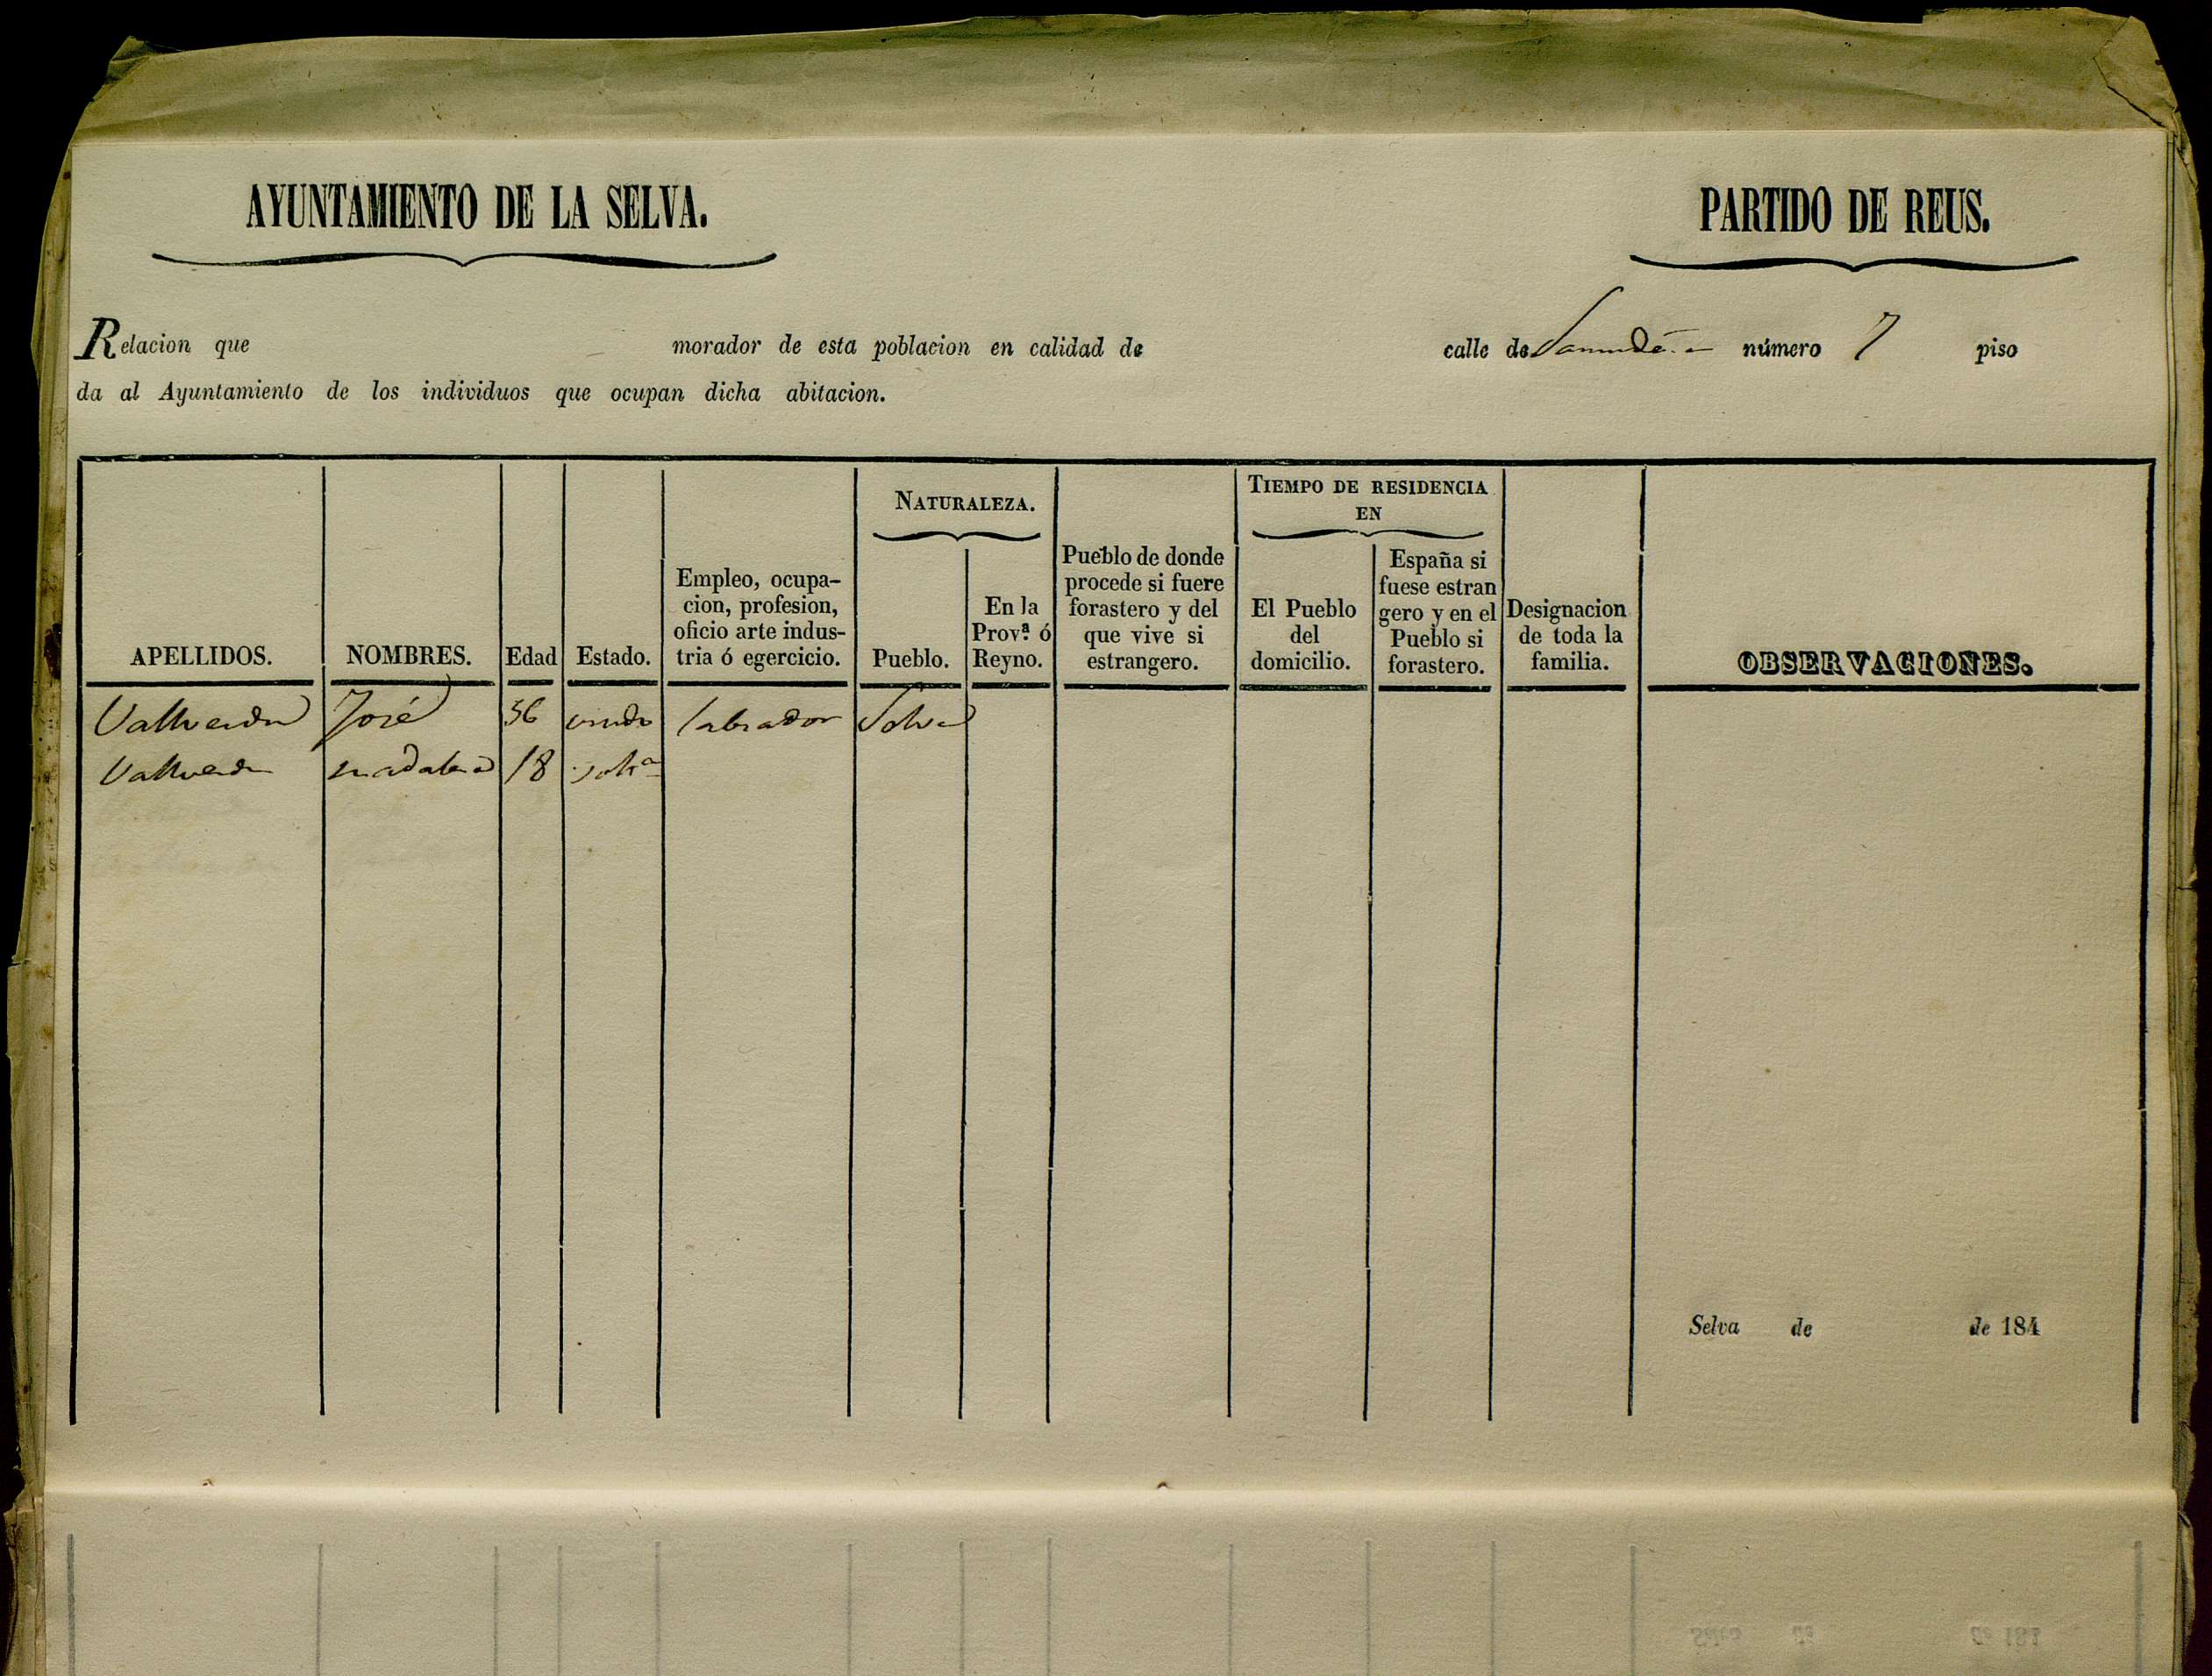 AYUNTAMIENTO DE LA SELVA.
PARTIDO DE REUS.
Relacion que morador de esta poblacion en calidad de calle de número 7 piso
da al Ayuntamiento de los individuos que ocupan dicha abitacion.
APELLIDOS.
NOMBRES.
Edad
Estado.
Empleo, ocupa-
cion, profesion,
oficio arte indus-
tria ó egercicio.
NATURALEZA.
Pueblo.
En la
Prov.ª ó
Reyno.
Pueblo de donde
procede si fuere
forastero y del
que vive si
estrangero.
TIEMPO DE RESIDENCIA
EN
El Pueblo
del
domicilio.
España si
fuese estran
gero y en el
Pueblo si
forastero.
Designacion
de toda la
familia.
OBSERVACIONES.
Vallverdu José 56 viudo labrador Selva
Vallverdu madalena 18 solt.ª
Selva de de 184